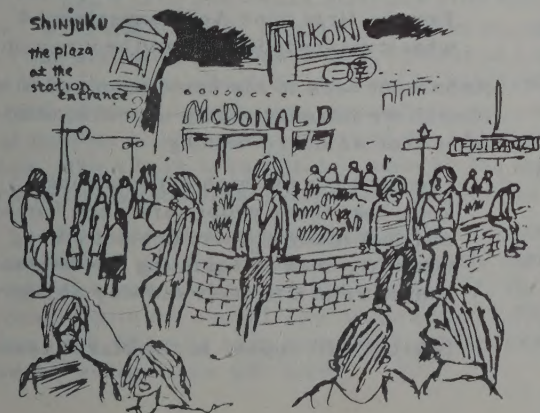 shinjuku
the plaza
at the
station
entrance
NIKON
McDONALD